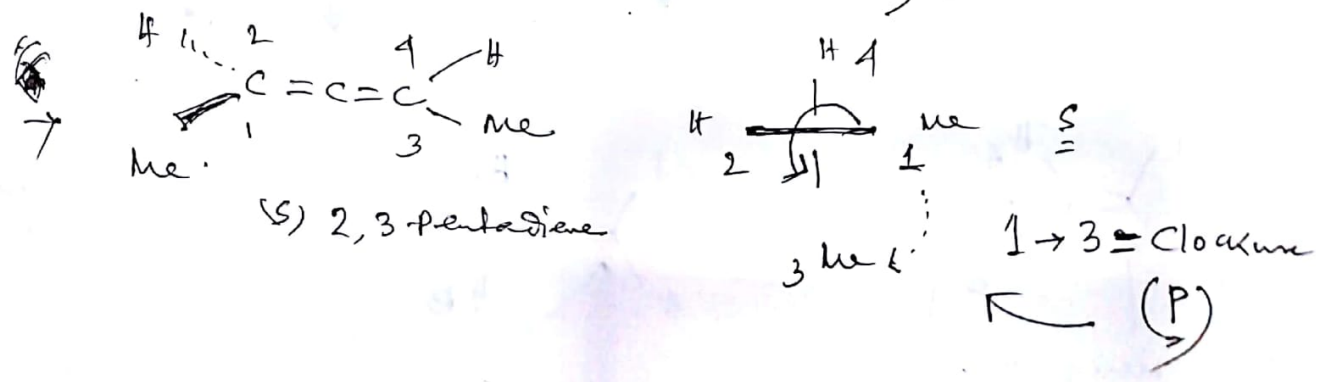 H 2 4 H
C = C = C
1 3 Me
Me.
(S) 2,3-Pentadiene
H 4
H Me S
2 1
3 Me
1 → 3 = Clockwise
(P)